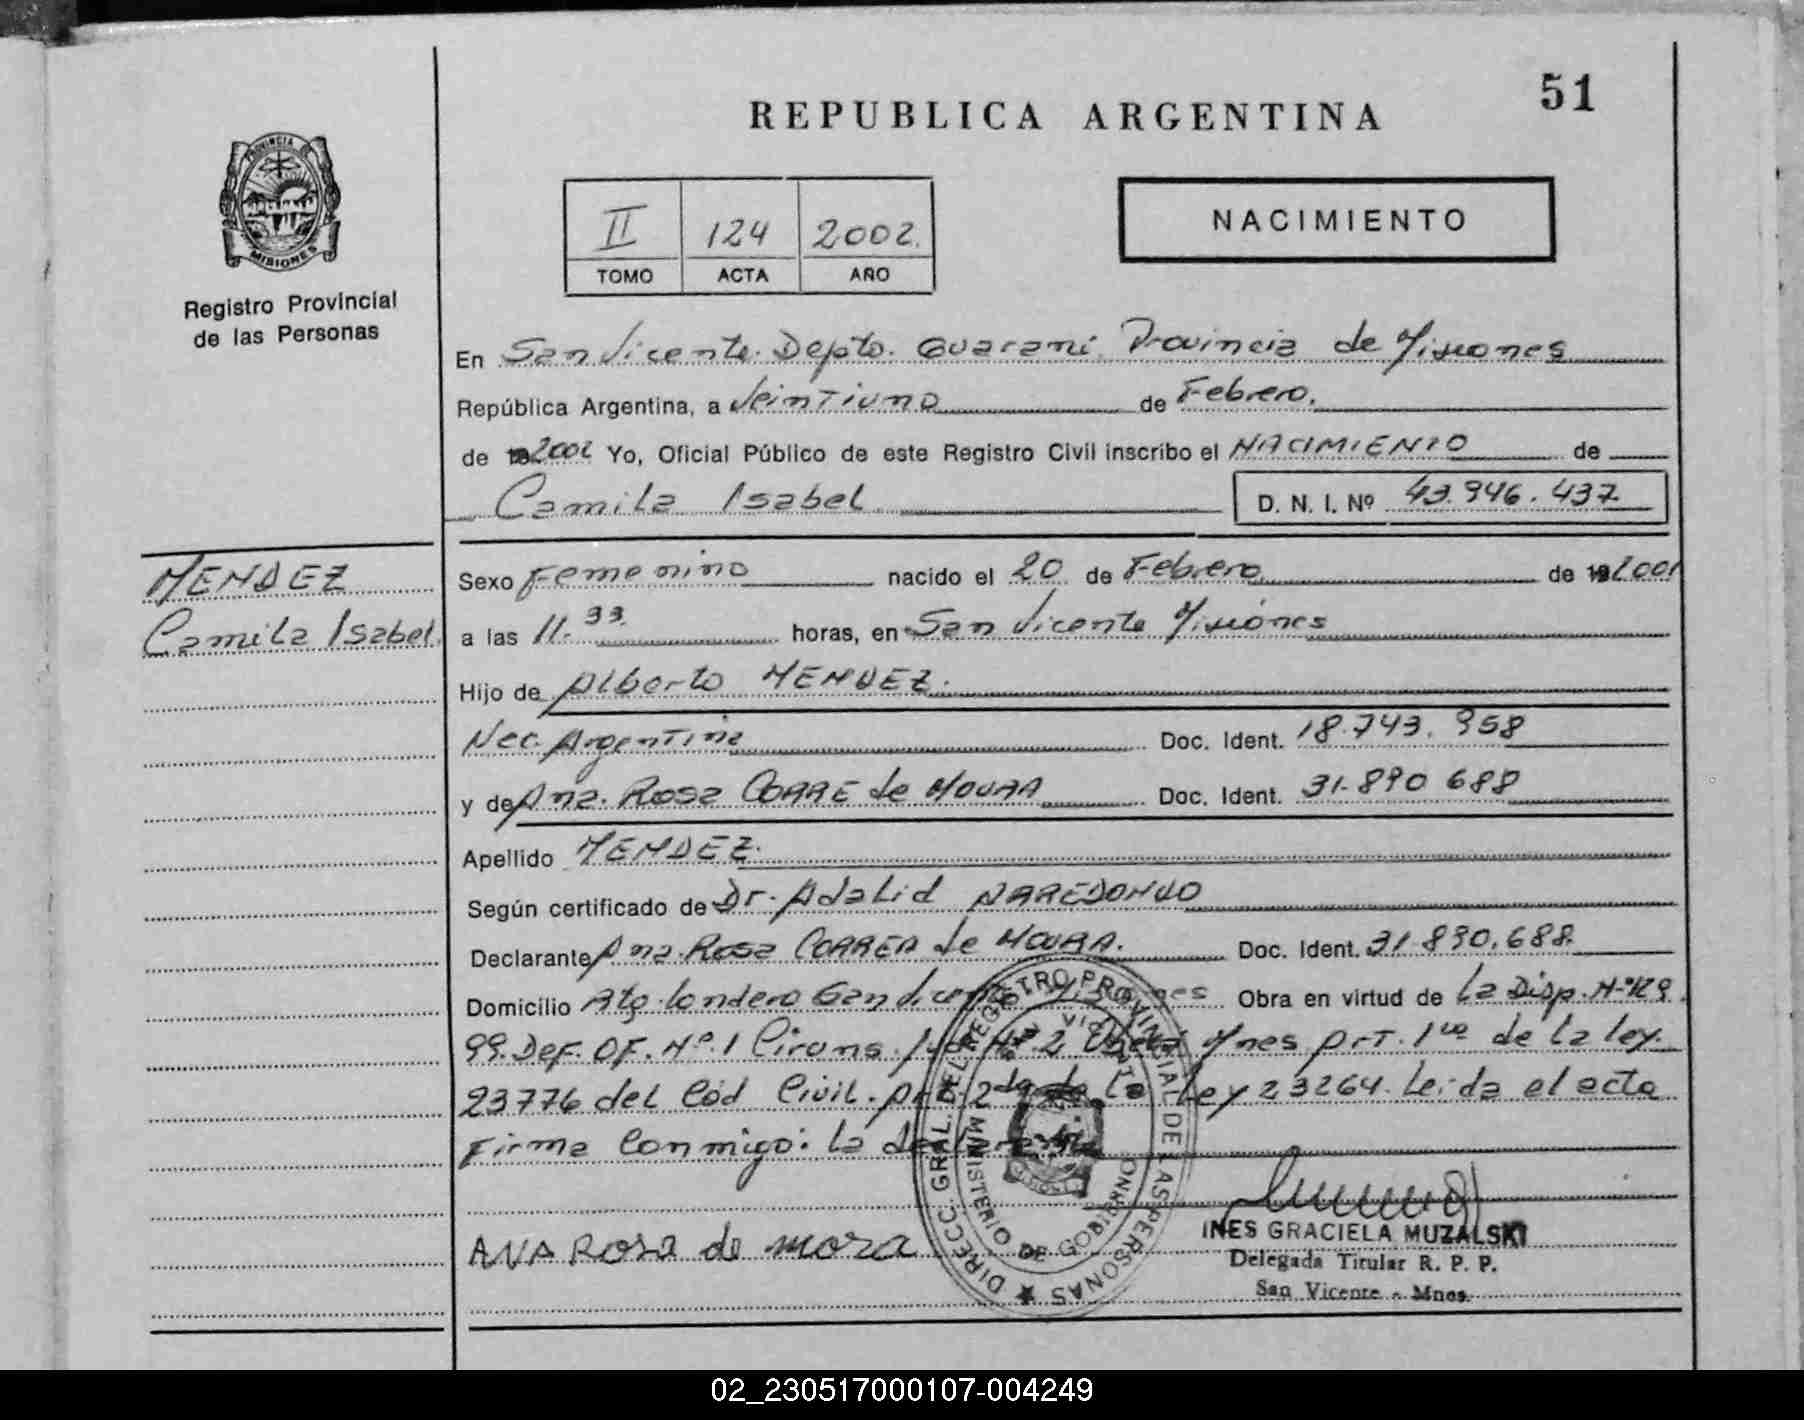 51
REPUBLICA ARGENTINA
PROVINCIA DE
MISIONES
Registro Provincial
de las Personas
II 124 2002.
TOMO ACTA AÑO
NACIMIENTO
En San Vicente. Depto. Guarani. Provincia de Misiones
República Argentina, a Veintiuno de Febrero.
de 2002 Yo, Oficial Público de este Registro Civil inscribo el NACIMIENTO de
Camila Isabel D. N. I. Nº 43.946.437
MENDEZ
Camila Isabel.
Sexo Femenino nacido el 20 de Febrero de
a las 11.33. horas, en San Vicente Misiónes
Hijo de Alberto MENDEZ.
Nac. Argentina Doc. Ident. 18.743.958
y de Ana. Rosa CORRE de MOURA Doc. Ident. 31.890 688
Apellido MENDEZ.
Según certificado de Dr. Adalid ARREDONDO
Declarante Ana. Rosa CORREA de MOURA. Doc. Ident. 31.890.688.
Domicilio San Vicente Obra en virtud de La Disp. Nº 129.
99. Def. OF. Nº. 1 Mnes Art. 1ro de la ley.
23776 del Cód Civil. Art. 2do de La Ley 23264. Leida el acta
Firma Conmigo: la declarante
ANA Rosa de mora
DIRECC. GRAL. DEL REGISTRO PROVINCIAL DE LAS PERSONAS
MINISTERIO DE GOBIERNO
INES GRACIELA MUZALSKI
Delegada Titular R. P. P.
San Vicente - Mnes.
02_230517000107-004249